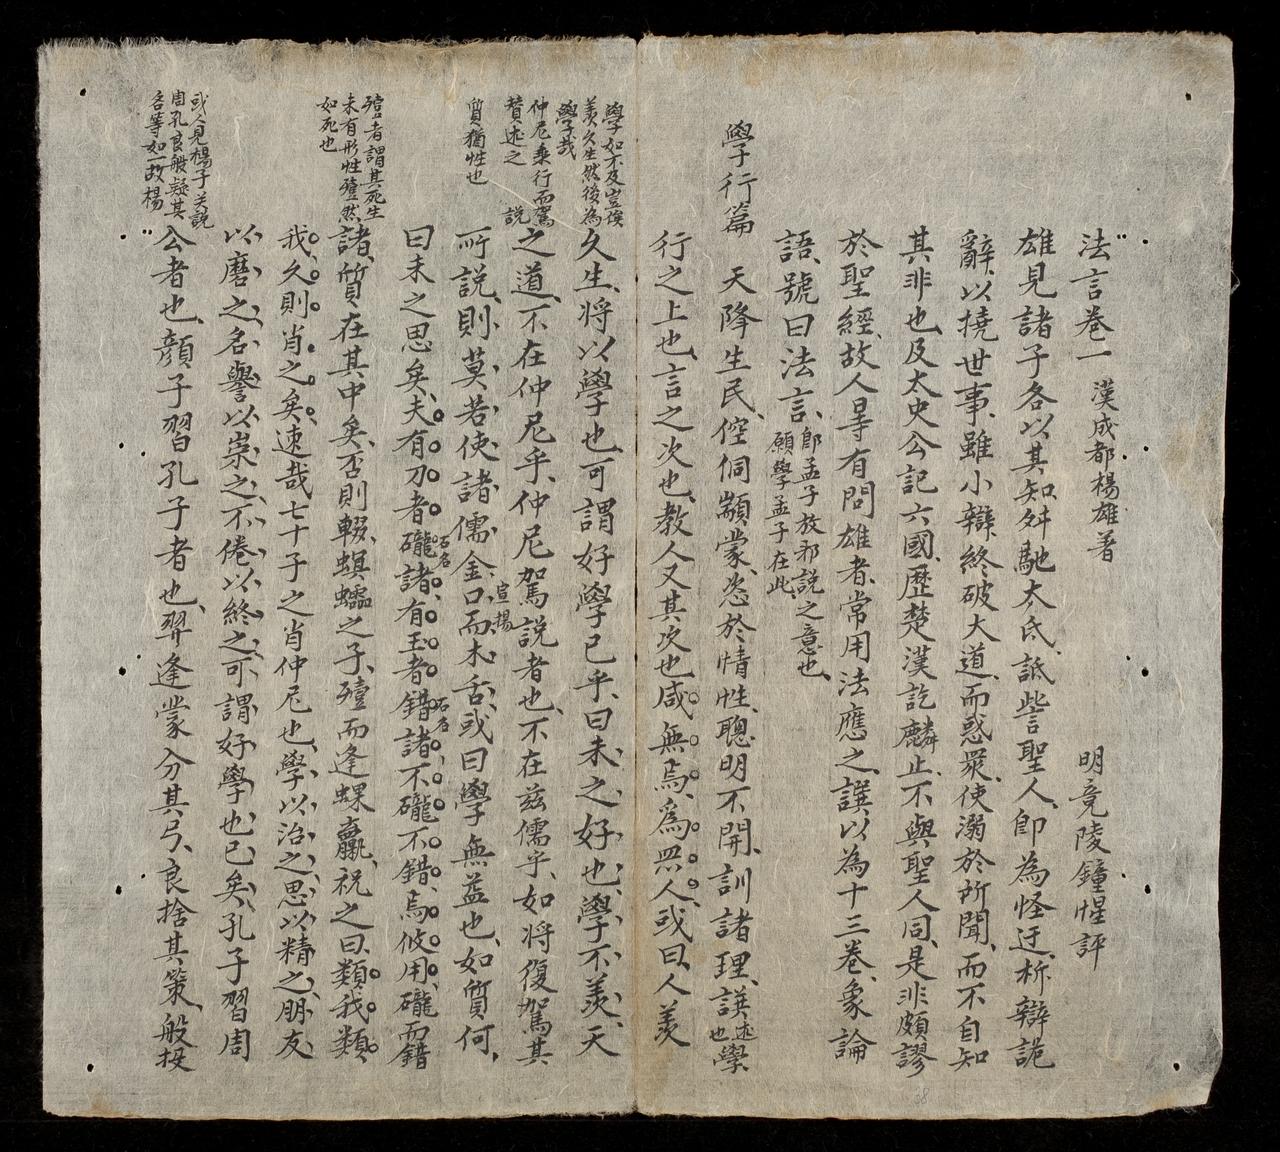 法言卷一 漢成都楊雄著 明竟陵鐘惺評
雄見諸子各以其知舛馳大氐詆訾聖人即為怪迂析辯詭
辭以撓世事雖小辯終破大道而惑眾使溺於所聞而不自知
其非也及太史公記六國歷楚漢訖麟止不與聖人同是非頗謬
於聖經故人㫷有問雄者常用法應之譔以為十三卷象論
語號曰法言 即孟子放邪說之意也 願學孟子在此
學行篇 天降生民倥侗顓蒙恣於情性聰明不開訓諸理譔述也學
行之上也言之次也教人又其次也咸無焉為眾人或曰人羨
久生將以學也可謂好學已乎曰未之好也學不羨天
之道不在仲尼乎仲尼駕說者也不在茲儒乎如將復駕其
所說則莫若使諸儒金口而木舌或曰學無益也如質何
宣揚
曰未之思矣夫有刀者礲諸有玉者錯諸不礲不錯焉攸用礲而錯
石名
石名
諸質在其中矣否則輟螟蠕之子殪而逢蜾蠃祝之曰類我類
我久則肖之矣速哉七十子之肖仲尼也學以治之思以精之朋友
以磨之名譽以崇之不倦以終之可謂好學也已矣孔子習周
公者也顏子習孔子者也羿逢蒙分其弓良捨其策般投
學如不及豈俟
羨久生然後為
學哉
仲尼乘行而駕 說
贊述之
質猶性也
殪者謂其死生
未有形性殪然
如死也
或人見楊子关說
周孔良般疑其
各等如一故楊